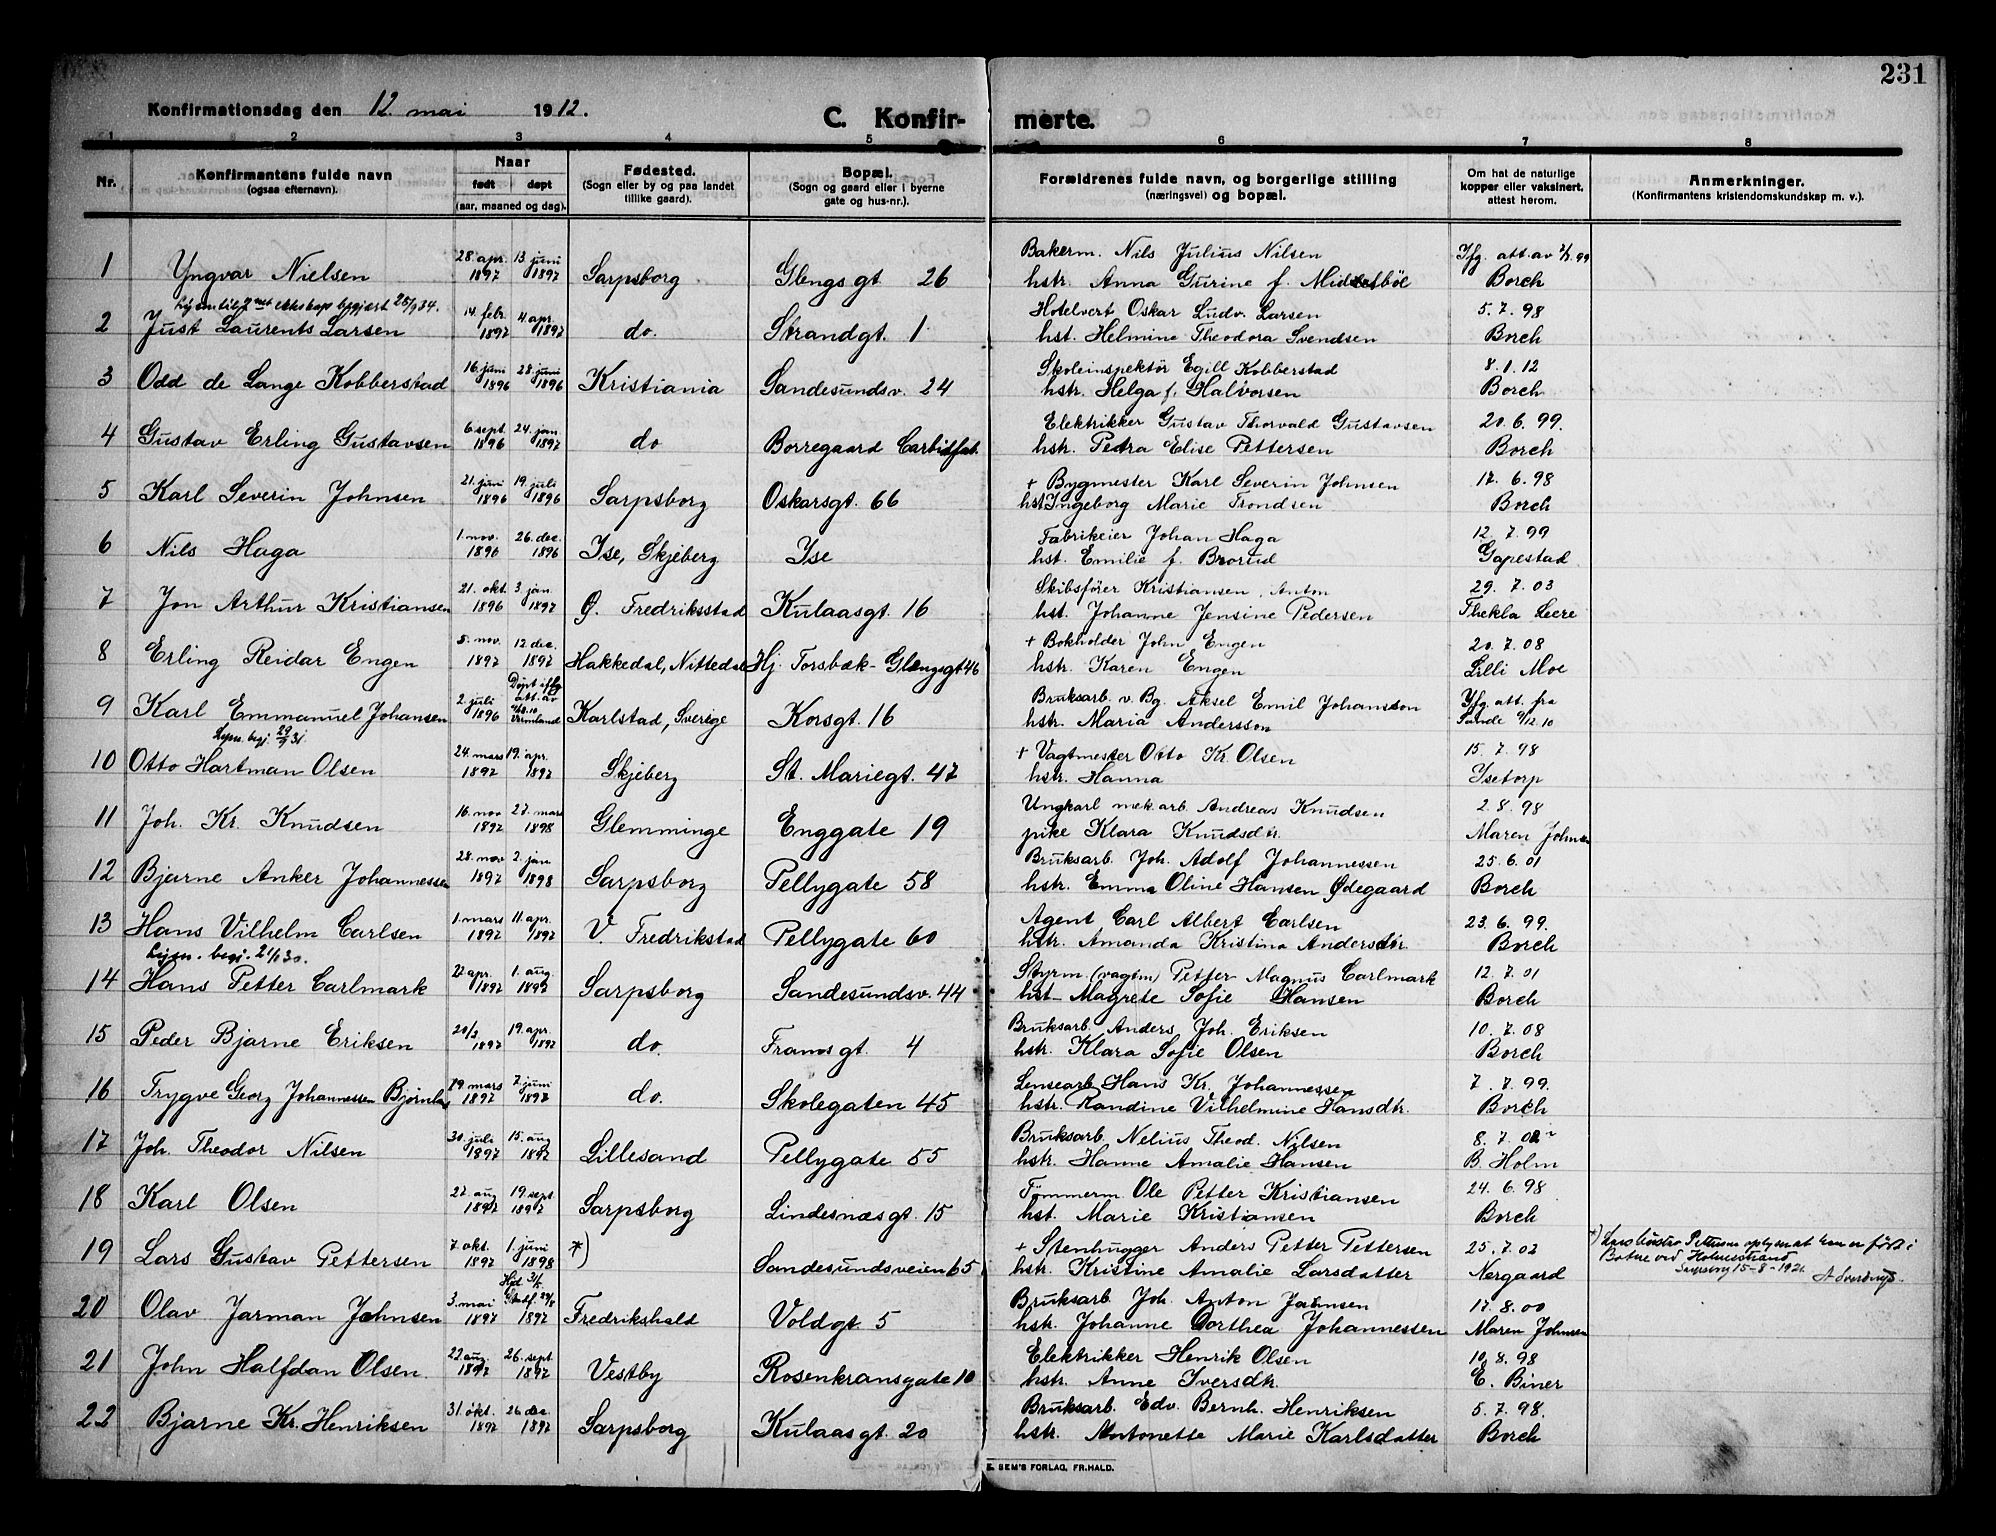 231
Konfirmationsdag den 12. mai 1912.
C. Konfirmerte.
1 2 3 4 5 6 7 8
Nr. Konfirmantens fulde navn (ogsaa efternavn). Naar født døpt (aar, maaned og dag). Fødested. (Sogn eller by og paa landet tillike gaard). Bopæl. (Sogn og gaard eller i byerne gate og hus-nr.). Forældrenes fulde navn, og borgerlige stilling (næringsvei) og bopæl. Om hat de naturlige kopper eller vaksinert, attest herom. Anmerkninger. (Konfirmantens kristendomskundskap m. v.).
1 Yngvar Nielsen 28. apr. 1897 13. juni 1897 Sarpsborg Glengsgt 26 Bakerm. Nils Julius Nilsen Ifg. att. av
hstr. Anna Gurine f. Middesböe Borch
Lysn. til ekteskap begjært 25/9 34.
2 Just Laurents Larsen 14. febr. 1897 4. apr. 1897 do. Strandgt. 1 Hotelvert Oskar Ludv. Larsen 5. 7. 98
hst. Helmine Theodora Svendsen Borch
3 Odd de Lange Kobberstad 16. juni 1896 28. juni 1896 Kristiania Sandesundsv. 24 Skoleinspektör Egill Kobberstad 8. 1. 12
hstr. Helga f. Halvorsen Borch
4 Gustav Erling Gustavsen 6. sept. 1896 24. jan. 1897 do Borregaard Carbidfab. Elektrikker Gustav Thorvald Gustavsen 20. 6. 99.
hstr. Petra Elise Pettersen Borch
5 Karl Severin Johnsen 21. juni 1896 19. juli 1896 Sarpsborg Oskarsgt. 66 + Bygmester Karl Severin Johnsen 17. 6. 98
hst. Ingeborg Marie Trondsen Borch
6 Nils Haga 1. nov. 1896 26. dec. 1896 Ise, Skjeberg Ise Fabrikeier Johan Haga 12. 7. 99
hst. Emilie f. Brorud Gapestad
7 Jon Arthur Kristiansen 21. okt. 1896 3. jan 1897 Ø. Fredriksstad Kulaasgt 16 Skibsförer Kristiansen, Anton 29. 7. 03
hst. Johanne Jensine Pedersen Thekla Leere
8 Erling Reidar Engen 5. nov. 1897 12 dec. 1897 Hakkedal, Nittedal Hj. Torsbæk - Glengsgt 46 + Bokholder John Engen 20. 7. 08
hstr. Karen Engen Lilli Moe
9 Karl Emmanuel Johansen 2. juli 1896 Døpt iflg att. av Karlstad, Sverige Korsgt. 16 Bruksarb. v. Bg. Aksel Emil Johansson Ifg. att. fra
hstr. Maria Andersson Sande 9/12.10
Lysn. begj. 29/9 31.
10 Otto Hartman Olsen 24. mars 1897 19. apr. 1897 Skjeberg St. Mariegt. 47 + Vagtmester Otto Kr. Olsen 15. 7. 98
hstr. Hanna Isetorp
11 Joh. Kr. Knudsen 16. nov 1897 27. mars 1898 Glemminge Enggate 19 Ungkarl mek. arb. Andreas Knudsen 2. 8. 98
pike Klara Knudsdtr. Maren Johnsen
12 Bjarne Anker Johannessen 28. nov 1897 2. jan 1898 Sarpsborg Pellygate 58 Bruksarb. Joh. Adolf Johannessen 25. 6. 01
hstr. Emma Oline Hansen Ødegaard Borch
13 Hans Vilhelm Carlsen 1. mars 1897 11. apr. 1897 V. Fredrikstad Pellygate 60 Agent Carl Albert Carlsen 23. 6. 99.
hstr. Amanda Kristina Andersdtr. Borch
Lysn. begj. 21/1 30.
14 Hans Petter Carlmark 22 apr. 1897 1. aug. 1897 Sarpsborg Sandesundsv. 44 Styrm. (vagtm) Petter Magnus Carlmark 12. 7. 01
hst. Magrete Sofie Hansen Borch
15 Peder Bjarne Eriksen 20/3 1897 19. apr. 1897 do. Framsgt. 4 Bruksarb. Anders Joh. Eriksen 10. 7. 08
hstr. Klara Sofie Olsen Borch
16 Trygve Georg Johannessen 29 mars 1897 7. juni 1897 do. Skolegaten 45 Lensearb. Hans Kr. Johannessen 7. 7. 99.
hstr. Randine Vilhelmine Hansdtr. Borch
17 Joh. Theodor Nilsen 30. juli 1897 15. aug 1897 Lillesand Pellygate 55 Bruksarb. Nelius Theod. Nilsen 8. 7. 02
hstr. Hanne Amalie Hansen B. Holm
18 Karl Olsen 27. aug 1897 19. sept. 1897 Sarpsborg Lindesnæsgt. 15 Tömmerm. Ole Petter Kristiansen 24. 6. 98
hst. Marie Kristiansen Borch
19 Lars Gustav Pettersen 7. okt. 1897 1. juni 1898 *) Sandesundsveien 65 + Stenhugger Anders Petter Pettersen 25. 7. 02 *) Pettersen oplyser at han er født i
hstr. Kristine Amalie Larsdatter Nergaard Botne ved Holmestrand
Sarpsborg 15-8-1921.
20 Olav Jarman Johnsen 3. mai 1897 Hjd. Stadf. 29/8 1897 Fredrikshald Voldgt. 5 Bruksarb. Joh. Anton Johnsen 17. 8. 00
hstr. Johanne Dorthea Johannessen Maren Johnsen
21 John Halfdan Olsen. 22 aug. 1897 26. sept. 1897 Vestby Rosenkransgate 10 Elektrikker Henrik Olsen 10. 8. 98
hstr. Anne Iversdtr. E. Biner
22 Bjarne Kr. Henriksen 31. okt. 1897 26 dec. 1897 Sarpsborg Kulaasgt. 20 Bruksarb. Edv. Bernh. Henriksen 5. 7. 98.
hstr. Antonette Marie Karlsdatter Borch
E. SEM'S FORLAG, FR.HALD.